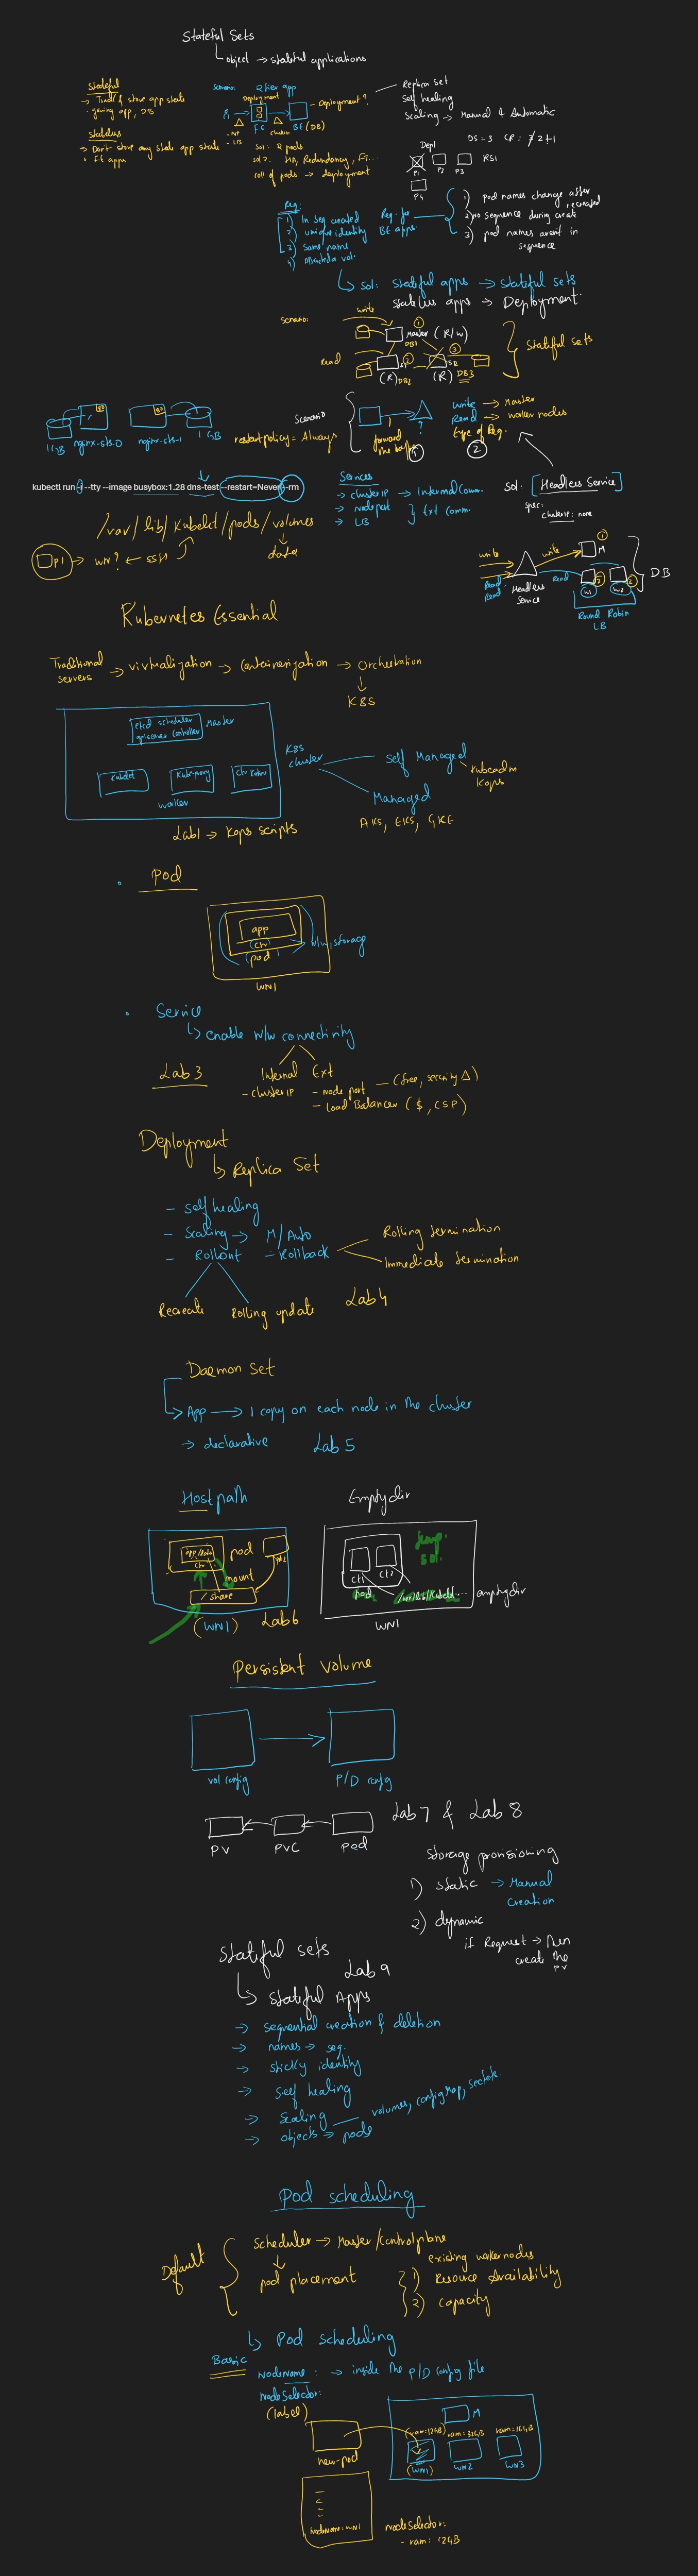 Stateful Sets
object → stateful applications
Stateful
→ Track & store app state
- gaming app, DB
Stateless
→ Don't store any stale app state
• FE apps
Scenario: 2 tier app
Deployment
- Deployment?
FE
BE (DB)
- NP
- LB
cluster
sol: 2 pods
sol 2: HA, Redundancy, FT...
coll of pods → deployment
Replica set
Self healing
Scaling → Manual & Automatic
DS = 3 CR: 3 2+1
Depl
P1
P2
P3
RS1
P4
Req:
1) In seq created
2) unique identity
3) Same name
4) Dedicated vol.
Req. for
BE apps.
1) pod names change after recreated
2) no sequence during create
3) pod names aren't in
sequence
sol: Stateful apps → Stateful sets
Stateless apps → Deployment.
Scenario:
write
1
Master (R/W)
DB1
Read
2
3
(R) DB2
(R) DB3
Stateful sets
1GB nginx-sts-0 nginx-sts-1 1GB
Scenario
restartpolicy = Always
forward
1
?
write → Master
Read → worker nodes
type of Req.
2
kubectl run -i --tty --image busybox:1.28 dns-test --restart=Never --rm
Services
→ cluster IP → Internal Comm.
→ node port
→ LB
Ext Comm.
sol: [Headless Service]
spec:
clusterIP: none
/var/lib/Kubelet/pods/volumes
data
P1 → WN? ← SSH
write
write
Read
Read
Headless
Service
Read
1
M
2
3
W1
W2
DB
Round Robin
LB
Kubernetes Essential
Traditional
servers → virtualization → Containerization → Orchestration
K8S
etcd scheduler
apiserver controller
Master
Kubelet
Kube-proxy
worker
K8S
cluster
Self Managed
Kubeadm
Kops
Managed
AKS, EKS, GKE
Lab1 → Kops scripts
• Pod
app
(ctr)
(pod)
n/w, storage
WN1
• Service
→ enable n/w connectivity
Lab 3
Internal Ext
- cluster IP
- node port — (free, security Δ)
- Load Balancer ($, CSP)
Deployment
→ Replica Set
- self healing
- Scaling → M/Auto
- Rollout - Rollback
Rolling termination
Immediate termination
Recreate
Rolling update
Lab 4
Daemon Set
→ App → 1 copy on each node in the cluster
→ declarative Lab 5
Hostpath
Emptydir
ctr
pod
mount
/share
(WN1)
Lab6
temp.
sol.
ct1
ct2
pod
emptydir
WN1
Persistent Volume
vol config
P/D config
PV
PVC
Pod
Lab 7 & Lab 8
Storage provisioning
1) static → Manual
creation
2) dynamic
if Request → Then
create the
PV
Stateful sets
Lab 9
→ Stateful Apps
→ sequential creation & deletion
→ names → seq.
→ sticky identity
→ self healing
→ scaling
→ objects → pods
volumes, config map, secrets.
Pod scheduling
Default
Scheduler → Master/Controlplane
pod placement
existing workernodes
1) Resource Availability
2) capacity
→ Pod scheduling
Basic
NodeName: → inside the P/D config file
NodeSelector:
(label)
new-pod
M
(ram:12GB)
ram:32GB
ram:16GB
(WN1)
WN2
WN3
NodeName: WN1
NodeSelector:
- ram: 12GB